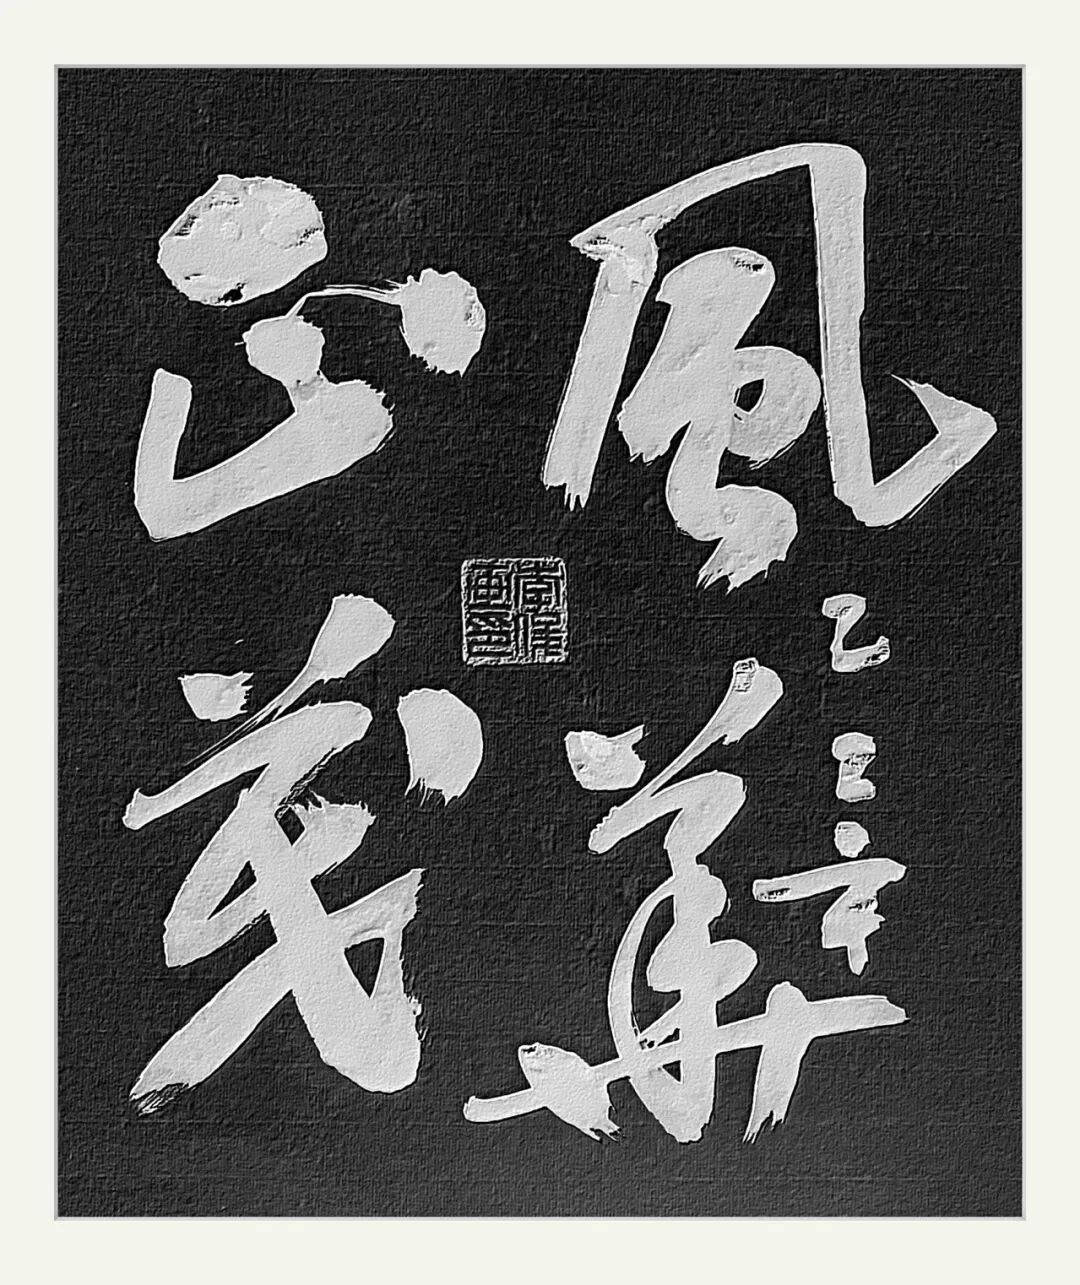 風華
正茂
乙巳